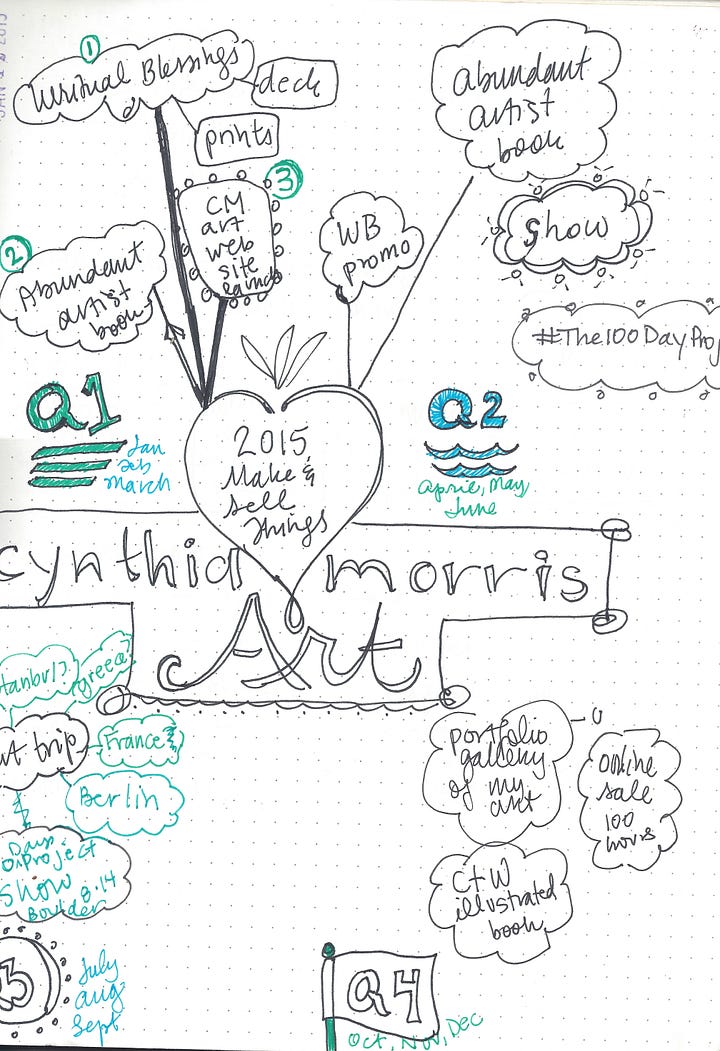 JAN 1 2 2015
1
Blessings
deck
prints
abundant
artist
book
3
CM
art
web
site
WB
promo
show
2
Abundant
artist
book
#The100DayProj
Q1
Jan
Feb
March
Q2
April, May
June
2015
Make &
Sell
Things
cynthia morris
Art
tanbul?
greece?
t trip
France?
Berlin
Days
Project
Show
8.14
Boulder
portfolio
gallery
of my
art
online
sale
100
hours
C+W
illustrated
book
3
July
aug
Sept.
Q4
Oct, Nov, Dec